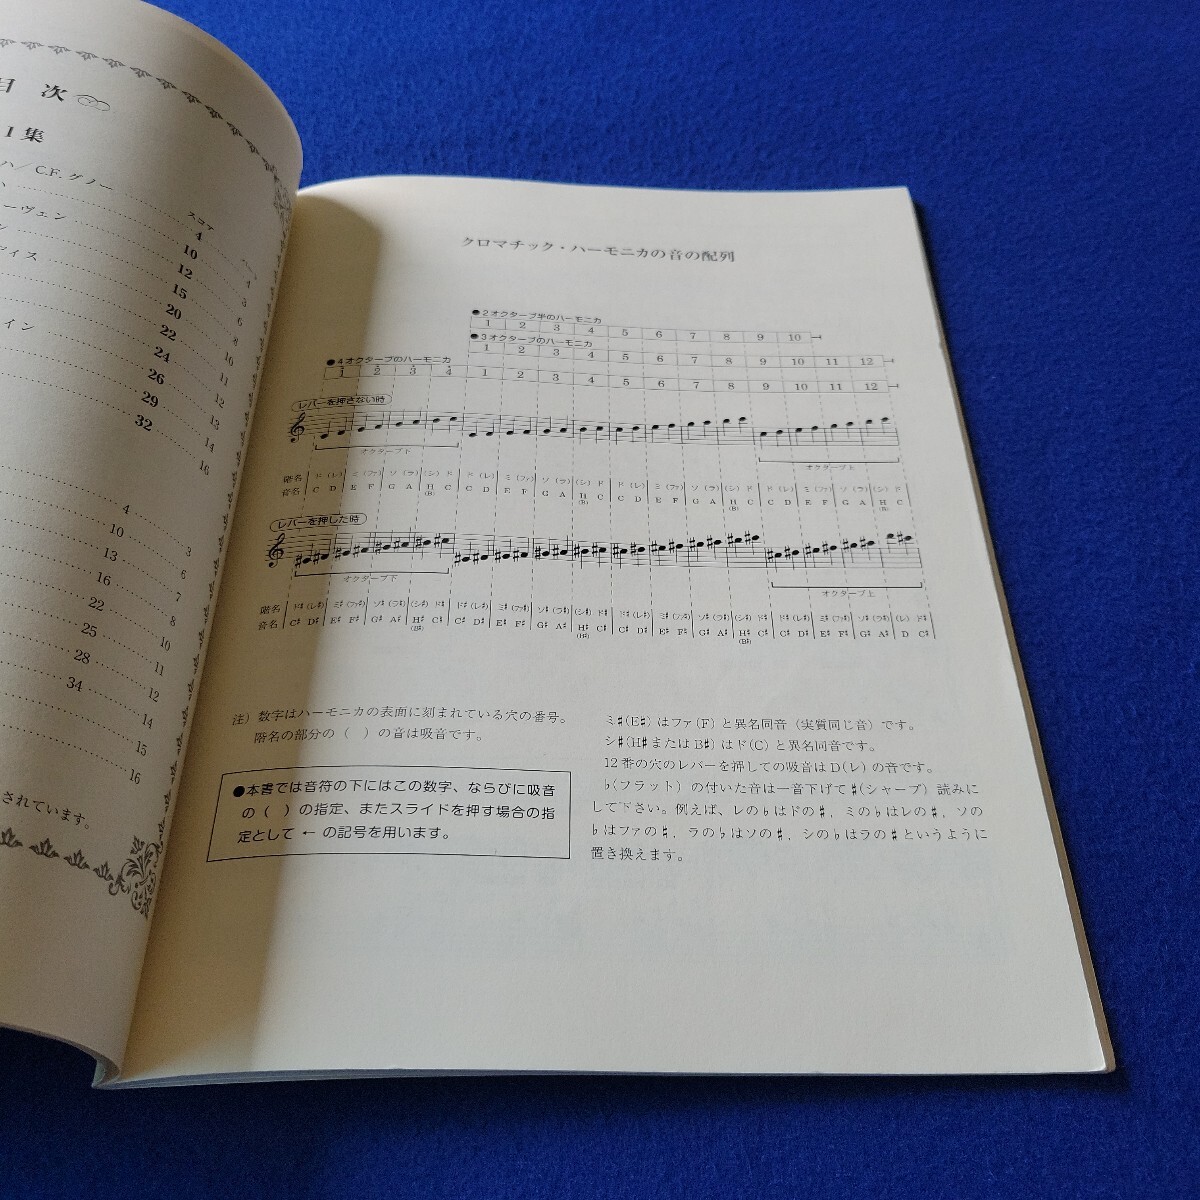 目 次
I 集
ハ／C.F. グノー
スコア
4
ーヴェン
10
12
ディス
15
20
イン
22
24
26
29
32
4
5
6
8
10
11
12
13
14
16
4
10
13
16
22
25
28
34
3
6
7
8
10
11
12
14
15
16
されています。
クロマチック・ハーモニカの音の配列
●2オクターブ半のハーモニカ
1 2 3 4 5 6 7 8 9 10
●3オクターブのハーモニカ
1 2 3 4 5 6 7 8 9 10 11 12
●4オクターブのハーモニカ
1 2 3 4 1 2 3 4 5 6 7 8 9 10 11 12
レバーを押さない時
オクターブ下
オクターブ上
階名 ド (レ) ミ (ファ) ソ (ラ) (シ) ド ド (レ) ミ (ファ) ソ (ラ) (シ) ド ド (レ) ミ (ファ) ソ (ラ) (シ) ド ド (レ) ミ (ファ) ソ (ラ) (シ) ド
音名 C D E F G A H(B) C C D E F G A H(B) C C D E F G A H(B) C C D E F G A H(B) C
レバーを押した時
オクターブ下
オクターブ上
階名 ド♯ (レ♯) ミ♯ (ファ♯) ソ♯ (ラ♯) (シ♯) ド♯ ド♯ (レ♯) ミ♯ (ファ♯) ソ♯ (ラ♯) (シ♯) ド♯ ド♯ (レ♯) ミ♯ (ファ♯) ソ♯ (ラ♯) (シ♯) ド♯ ド♯ (レ♯) ミ♯ (ファ♯) ソ♯ (ラ♯) (レ) ド♯
音名 C♯ D♯ E♯ F♯ G♯ A♯ H♯(B♯) C♯ C♯ D♯ E♯ F♯ G♯ A♯ H♯(B♯) C♯ C♯ D♯ E♯ F♯ G♯ A♯ H♯(B♯) C♯ C♯ D♯ E♯ F♯ G♯ A♯ D C♯
注）数字はハーモニカの表面に刻まれている穴の番号。
階名の部分の（ ）の音は吸音です。
●本書では音符の下にはこの数字、ならびに吸音
の（ ）の指定、またスライドを押す場合の指
定として ← の記号を用います。
ミ♯(E♯) はファ(F) と異名同音（実質同じ音）です。
シ♯(H♯またはB♯) はド(C) と異名同音です。
12番の穴のレバーを押しての吸音はD(レ) の音です。
♭(フラット) の付いた音は一音下げて♯(シャープ) 読みに
して下さい。例えば、レの♭はドの♯, ミの♭はレの♯, ソの
♭はファの♯, ラの♭はソの♯, シの♭はラの♯というように
置き換えます。